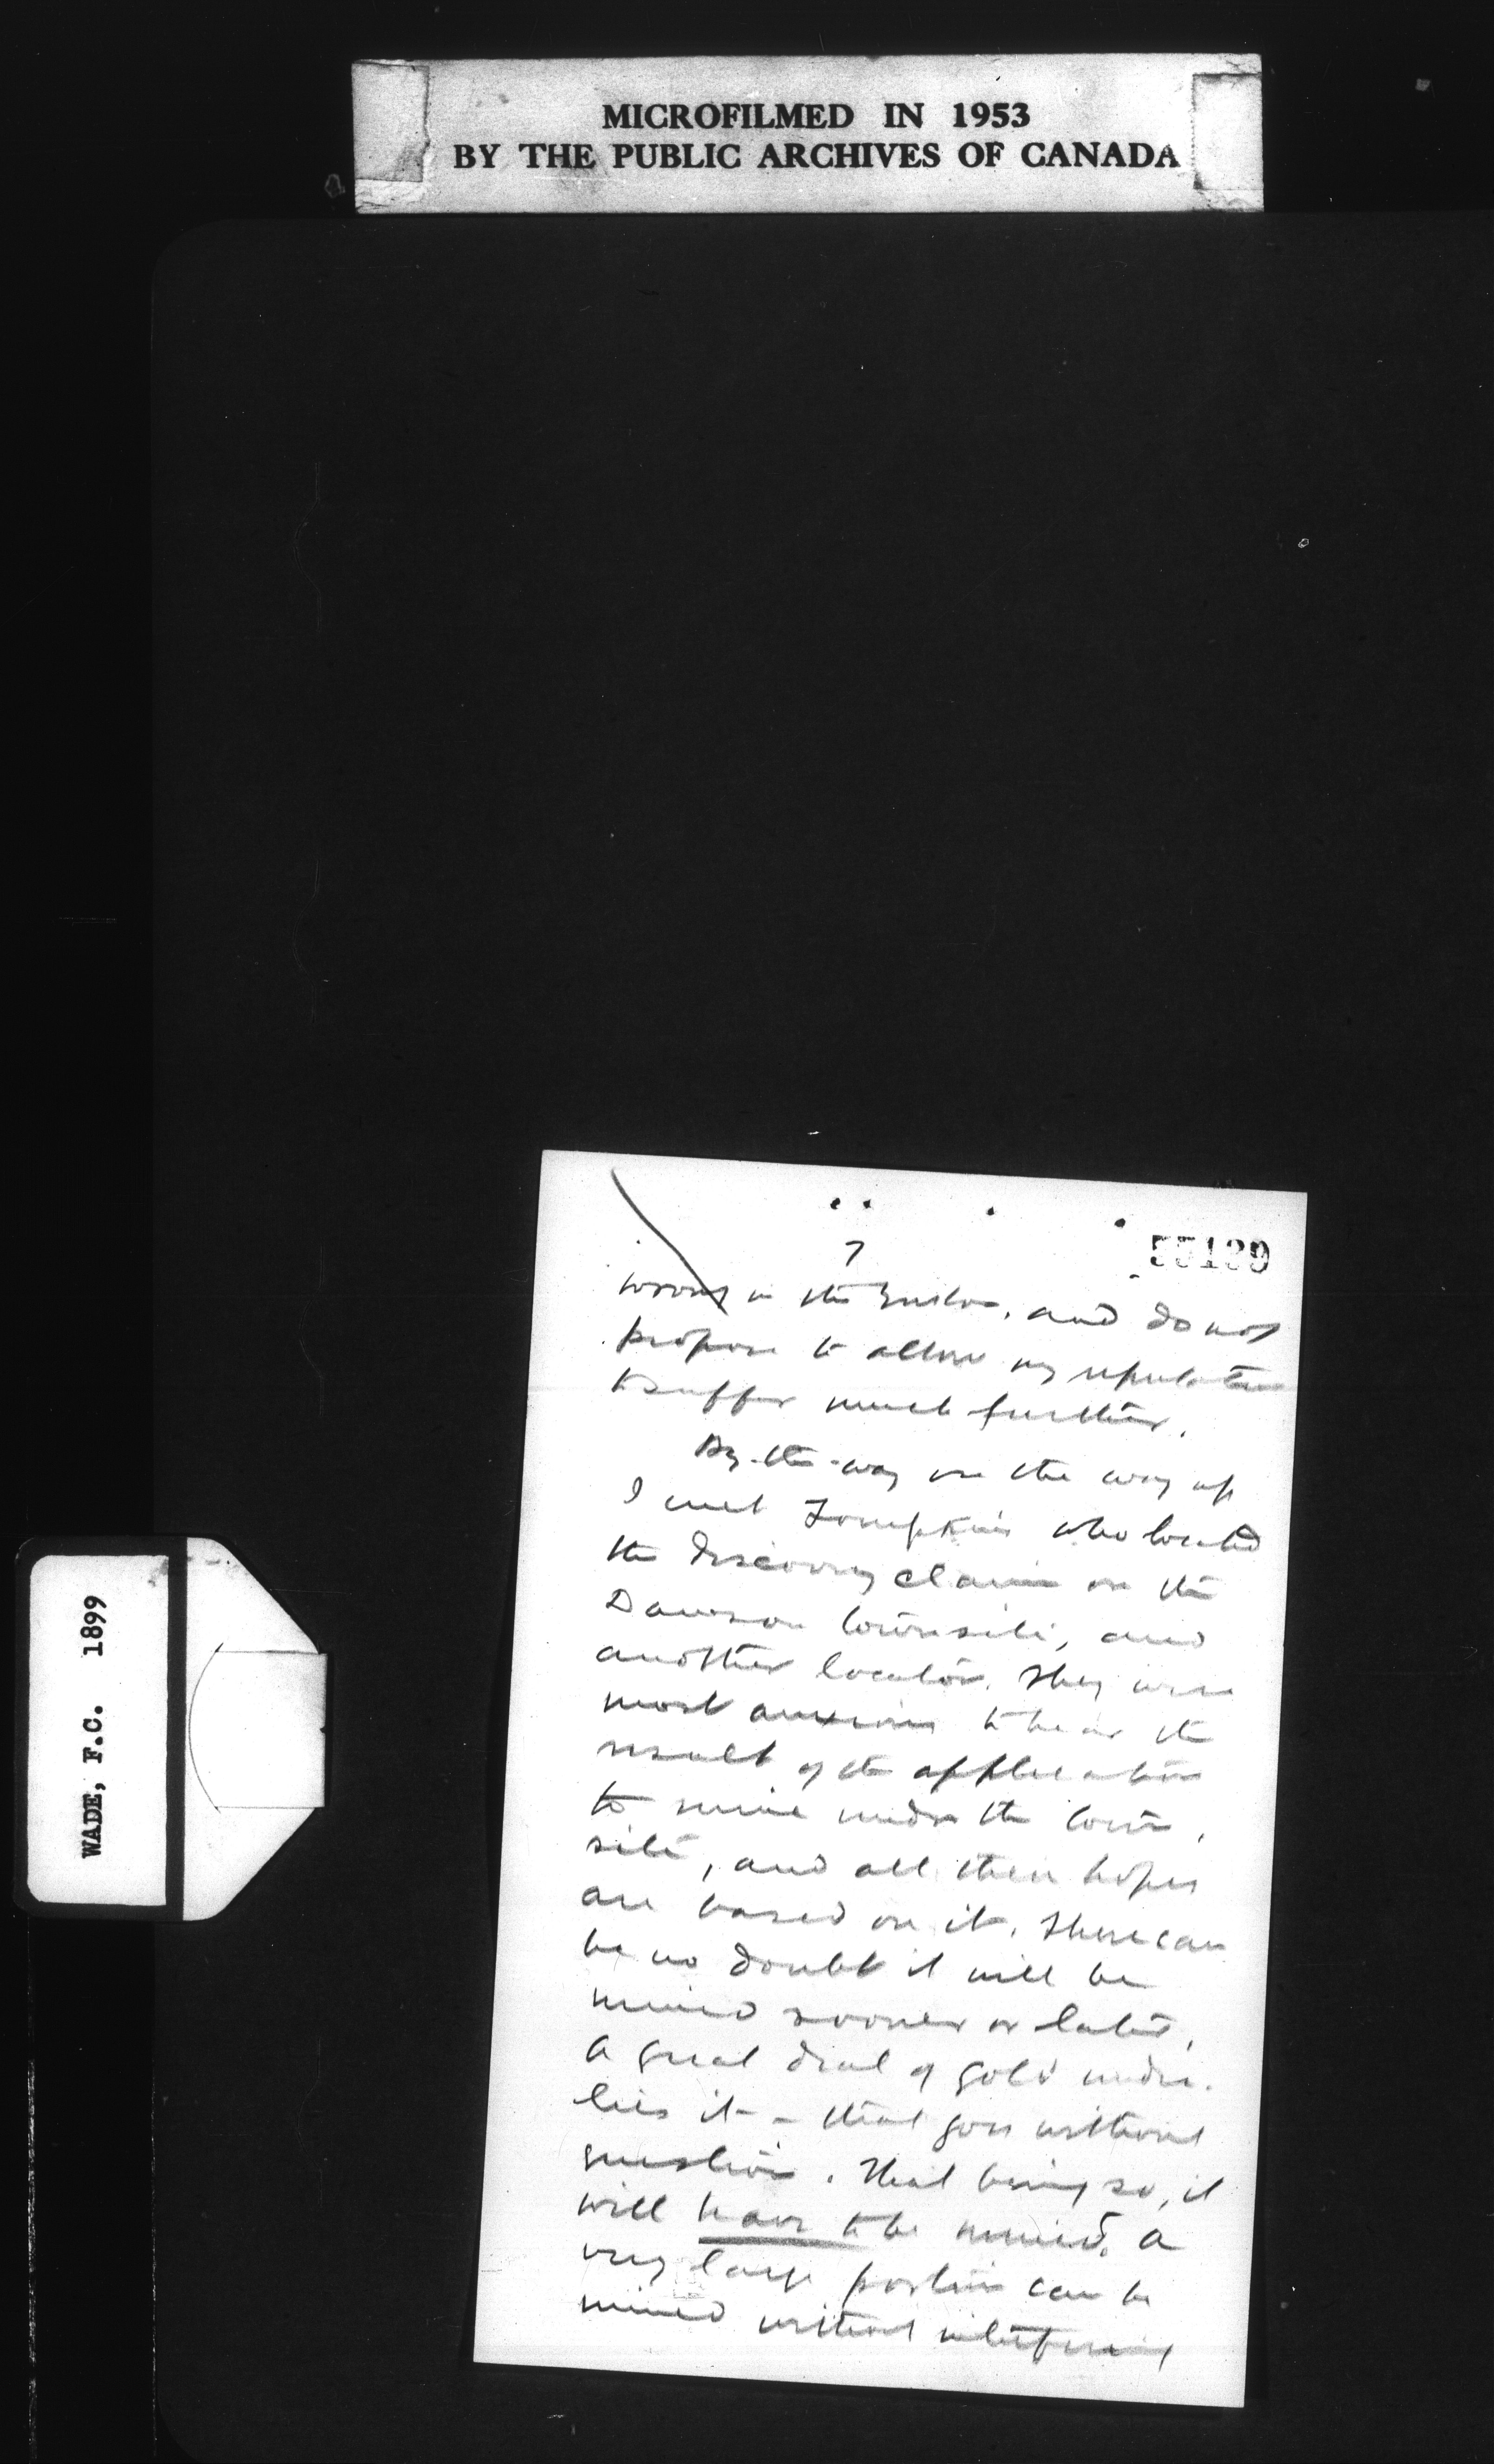 MICROFILMED IN 1953
BY THE PUBLIC ARCHIVES OF CANADA
WADE, F.C. 1899
7
55139
wrong in the , and do not
propose to allow my reputation
to suffer much further.
By-the-way on the way up
I met Tompkins who located
the discovery claim on the
Dawson townsite, and
another locator. They were
most anxious to hear the
result of the application
to mine under the town
site, and all their hopes
are based on it. There can
be no doubt it will be
mined sooner or later.
A great deal of gold under-
lies it - that goes without
question. That being so, it
will have to be mined. A
very large portion can be
mined without interfering